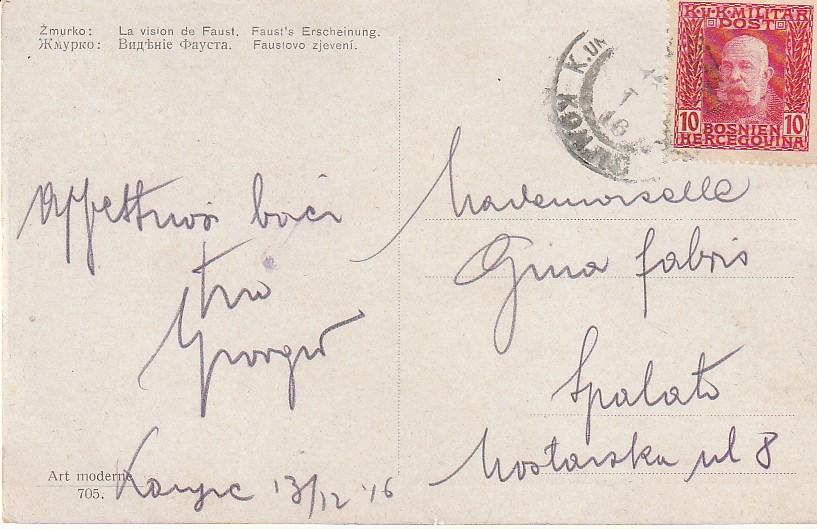 Żmurko: La vision de Faust. Faust's Erscheinung.
Жмурко: Видѣніе Фауста. Faustovo zjevení.
K.u.K. MILITÄR
POST
10 BOSNIEN 10
HERCEGOVINA
Affettuosi baci
tuo
Giorgio
Mademoiselle
Gina Fabris
Spalato
Mostarska ul 8
Art moderne
705.
Konjic 13/12 '16